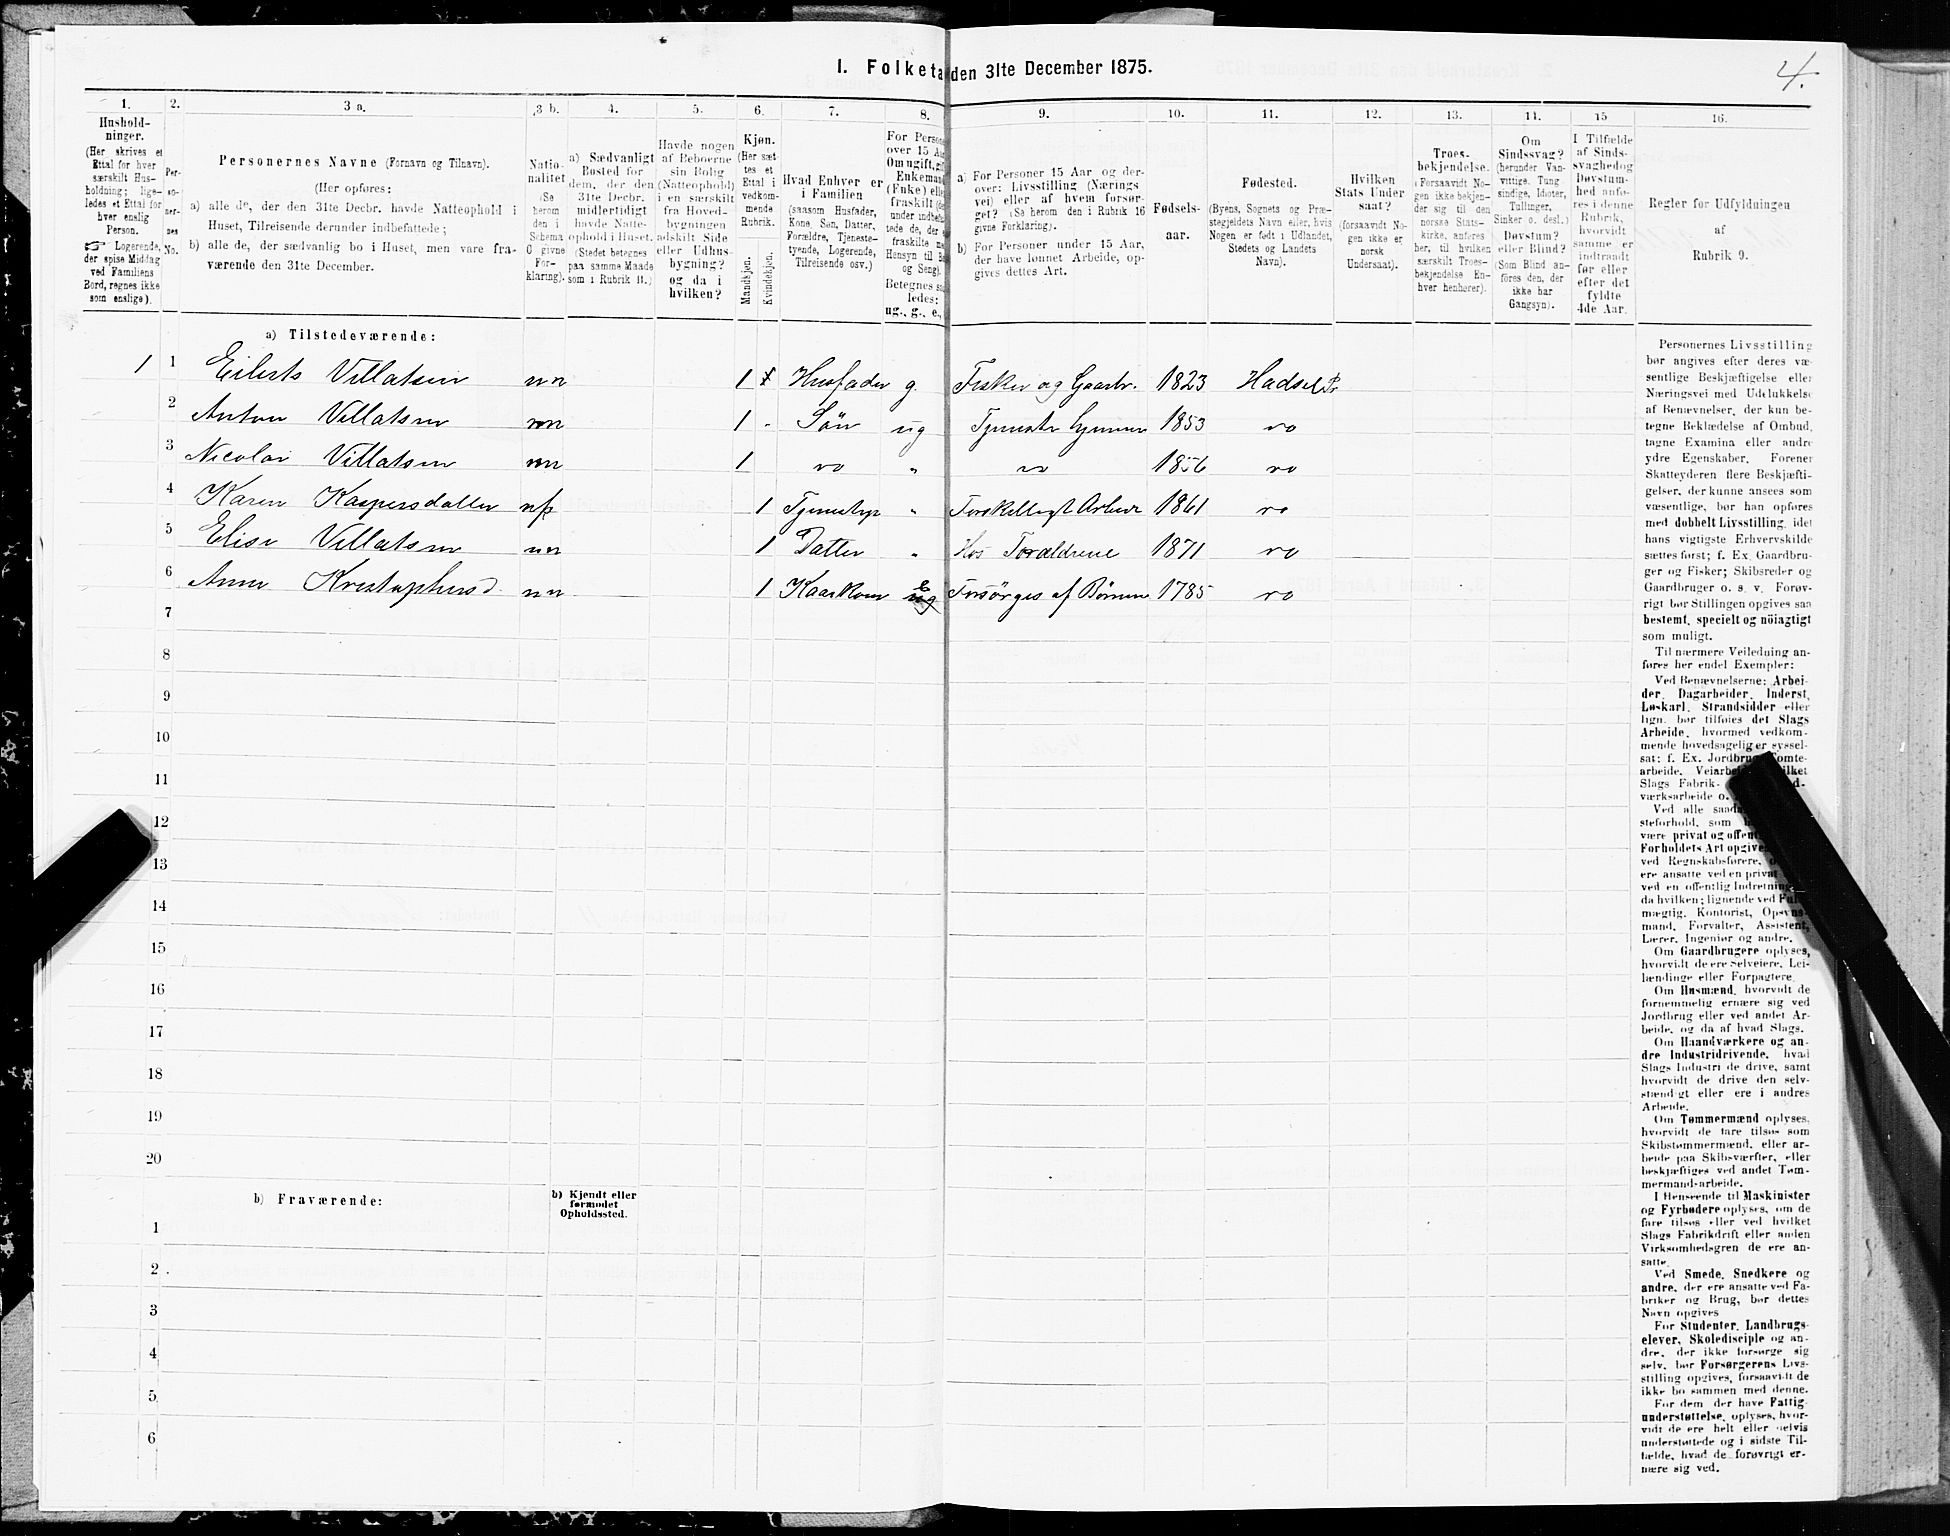 I. Folketa den 31te December 1875.
4.
1.
Hushold-
ninger.
(Her skrives et
Ettal for hver
særskilt Hus-
holdning; lige-
ledes et Ettal for
hver enslig
Person.
☞ Logerende,
der spise Middag
ved Familiens
Bord, regnes ikke
som enslige).
2.
Per-
so-
ner-
nes
No.
3 a.
Personernes Navne (Fornavn og Tilnavn).
(Her opføres:
a) alle de, der den 31te Decbr. havde Natteophold i
Huset, Tilreisende derunder indbefattede;
b) alle de, der sædvanlig bo i Huset, men vare fra-
værende den 31te December.
3 b.
Natio-
nalitet
(Se
herom
den i
Schema
6 givne
For-
klaring).
4.
a) Sædvanligt
Bosted for
dem, der den
31te Decbr.
midlertidigt
havde Natte-
ophold i Huset.
(Stedet betegnes
paa samme Maade
som i Rubrik 11.)
5.
Havde nogen
af Beboerne
sin Bolig
(Natteophold)
i en særskilt
fra Hoved-
bygningen
adskilt Side
eller Udhus-
bygning?
og da i
hvilken?
6.
Kjøn.
(Her sæt-
tes et
Ettal i
vedkom-
mende
Rubrik.
Mandkjøn.
Kvindekjøn.
7.
Hvad Enhver er
i Familien
(saasom Husfader,
Kone, Søn, Datter,
Forældre, Tjeneste-
tyende, Logerende,
Tilreisende osv.)
8.
For Perso
over 15 Aa
Om ugift, gi
Enkemand
(Enke) elle
fraskilt (de
under indbe
tede de, der
fraskilte
Hensyn til B
og Seng).
Betegnes s
ledes:
ug., g., e.,
9.
a) For Personer 15 Aar og der-
over: Livsstilling (Nærings
vei) eller af hvem forsør-
get? (Se herom den i Rubrik 16
givne Forklaring).
b) For Personer under 15 Aar,
der have lønnet Arbeide, op-
gives dettes Art.
10.
Fødsels-
aar.
11.
Fødested.
(Byens, Sognets og Præ-
stegjeldets Navn eller, hvis
Nogen er født i Udlandet,
Stedets og Landets
Navn).
12.
Hvilken
Stats Under
saat?
(forsaavidt No-
gen ikke er
norsk
Undersaat).
13.
Troes-
bekjendelse.
(Forsaavidt No-
gen ikke bekjen-
der sig til den
norske Stats-
kirke, anføres
her, til hvilken
særskilt Troes-
bekjendelse En-
hver henhører).
14.
Om
Sindssvag?
(herunder Van-
vittige, Tung
sindige, Idioter,
Tullinger,
Sinker o. desl.)
Døvstum?
eller Blind?
(Som Blind an-
føres den, der
ikke har
Gangsyn).
15
I Tilfælde
af Sinds-
svaghed og
Døvstum-
hed anfø-
res i denne
Rubrik,
hvorvidt
samme er
indtraadt
før eller
efter det
fyldte
4de Aar.
16.
Regler for Udfyldningen
af
Rubrik 9.
a) Tilstedeværende:
1 1 Eilerts Villatsen nn 1 Husfader g. Fisker og Gaardbr. 1823 Hadsel Pr
2 Anton Villatsen nn 1 Søn ug 1853 do
3 Nicolai Villatsen nn 1 do „ do 1856 do
4 Karen Kaspersdatter nf 1 „ Forskelligt Arbeide 1861 do
5 Elise Villatsen nn 1 Datter „ Hos Forældrene 1871 do
6 Anne nn 1 Kaarkone E Forsørges af Børnene 1785 do
7
8
9
10
11
12
13
14
15
16
17
18
19
20
b) Fraværende:
b) Kjendt eller
formodet
Opholdssted.
1
2
3
4
5
6
Personernes Livsstilling
bør angives efter deres væ-
sentlige Beskjæftigelse eller
Næringsvei med Udelukkelse
af Benævnelser, der kun be-
tegne Beklædelse af Ombud,
tagne Examina eller andre
ydre Egenskaber. Forener
Skatteyderen flere Beskjæfti-
gelser, der kunne ansees som
væsentlige, bør han opføres
med dobbelt Livsstilling, idet
hans vigtigste Erhvervskilde
sættes først; f. Ex. Gaardbru-
ger og Fisker; Skibsreder og
Gaardbruger o. s. v. Forøv-
rigt bør Stillingen opgives saa
bestemt, specielt og nöiagtigt
som muligt.
Til nærmere Veiledning an-
føres her endel Exempler:
Ved Benævnelserne: Arbei-
der, Dagarbeider, Inderst,
Løskarl, Strandsidder eller
lign. bør tilføies det Slags
Arbeide, hvormed vedkom-
mende hovedsagelig er syssel-
sat; f. Ex. Jordbrug Tomte-
arbeide, Veiarbei hvilket
Slags Fabrik- d-
værksarbeide o.
Ved alle saad
steforhold, som
være privat og offen
Forholdets Art opgive
ved Regnskabsførere, o
ere ansatte ved en privat
ved en offentlig Indretning
da hvilken; lignende ved Ful-
mægtig, Kontorist, Opsyns-
mand, Forvalter, Assistent,
Lærer, Ingeniør og andre.
Om Gaardbrugere oplyses,
hvorvidt de ere Selveiere, Lei-
lændinge eller Forpagtere.
Om Husmænd, hvorvidt de
fornemmelig ernære sig ved
Jordbrug eller ved andet Ar-
beide, og da af hvad Slags.
Om Haandværkere og an-
dre Industridrivende, hvad
Slags Industri de drive, samt
hvorvidt de drive den selv-
stændigt eller ere i andres
Arbeide.
Om Tømmermænd oplyses,
hvorvidt de fare tilsøs som
Skibstømmermænd, eller ar-
beide paa Skibsværfter, eller
beskjæftiges ved andet Tøm-
mermand-arbeide.
I Henseende til Maskinister
og Fyrbødere oplyses, om de
fare tilsøs eller ved hvilket
Slags Fabrikdrift eller anden
Virksomhedsgren de ere an-
satte.
Ved Smede, Snedkere og
andre, der ere ansatte ved Fa-
briker og Brug, bør dettes
Navn opgives
For Studenter, Landbrugs-
elever, Skoledisciple og an-
dre, der ikke forsørge sig
selv, bør Forsørgerens Livs-
stilling opgives, forsaavidt de
ikke bo sammen med denne.
For dem, der have Fattig-
understøttelse, oplyses, hvor-
vidt de ere helt eller delvis
understøttede og i sidste Til-
fælde, hvad de forøvrigt er-
nære sig ved.